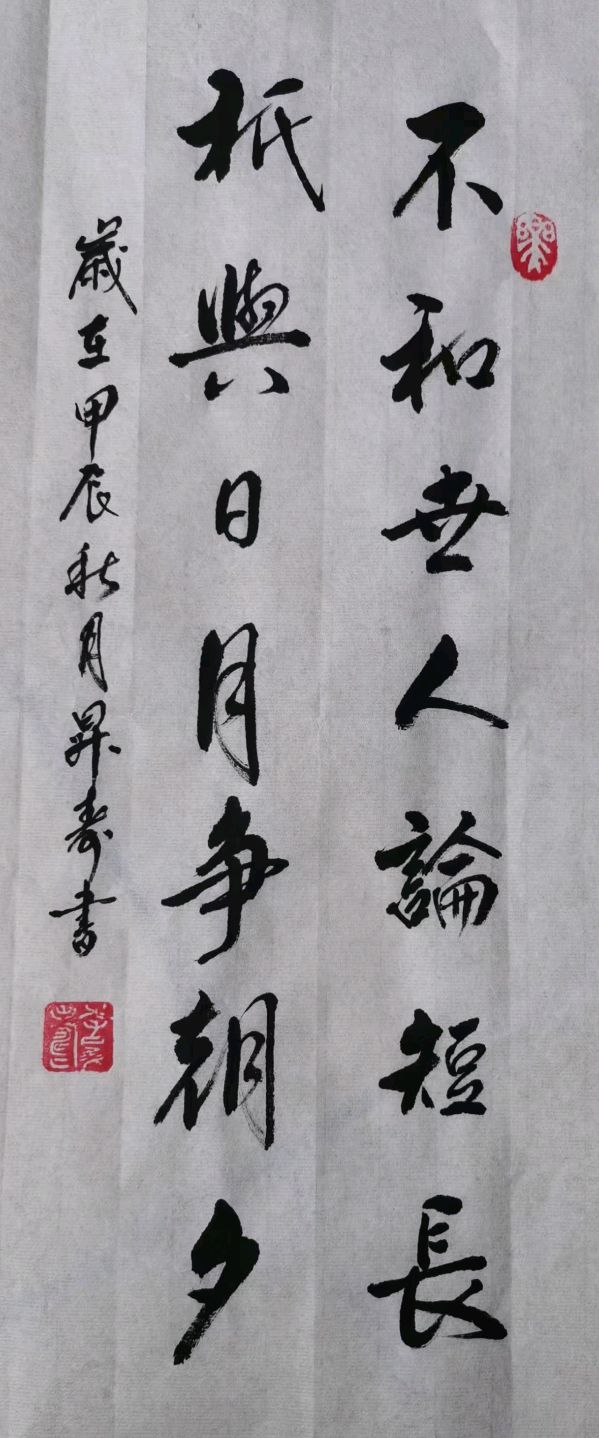 不和世人論短長
衹與日月争朝夕
歲在甲辰秋月昇壽書